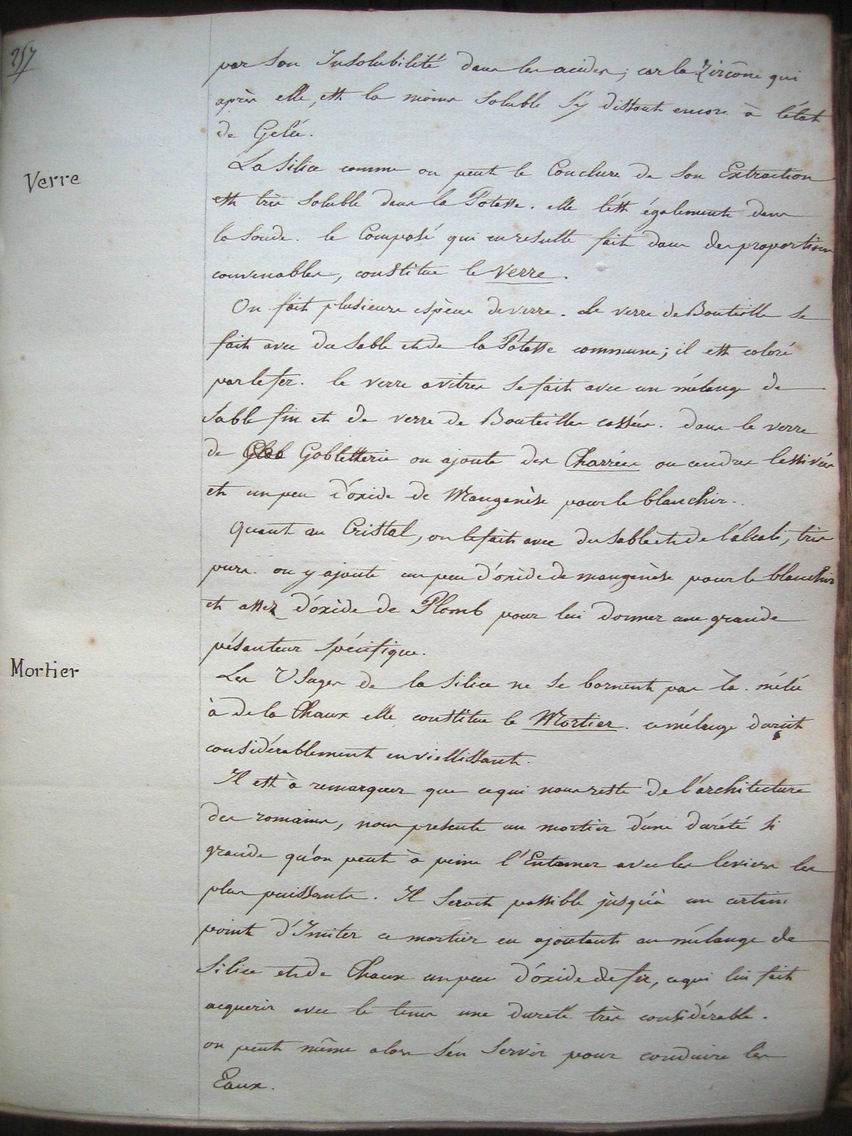 257
par son Insolubilité dans les acides; car la Zircône qui
après elle, est la moins soluble s'y dissout encore à l'état
de Gelée.
Verre
La Silice comme on peut le Conclure de son Extraction
est très soluble dans la Potasse. elle l'est également dans
la Soude. le Composé qui en resulte fait dans des proportions
convenables, constitue le Verre.
On fait plusieurs espèces de verre. Le verre de Bouteille se
fait avec du Sable et de la Potasse commune; il est coloré
par le fer. le verre a vitres se fait avec un mélange de
Sable fin et de verre de Bouteilles cassées. dans le verre
de Gobletterie on ajoute des Charrées ou cendres lessivées
et un peu d'oxide de Manganèse pour le blanchir.
Quant au Cristal, on le fait avec du sable et de l'alcali, très
purs. on y ajoute un peu d'oxide de manganèse pour le blanchir
et assez d'oxide de Plomb pour lui donner une grande
pésanteur spécifique.
Mortier
Les Usages de la Silice ne se bornent pas là. mélée
à de la Chaux elle constitue le Mortier. ce mélange durcit
considérablement en vieillissant.
Il est à remarquer que ce qui nous reste de l'architecture
des romains, nous presente un mortier d'une dureté si
grande qu'on peut à peine l'Entamer avec les leviers les
plus puissants. Il seroit possible jusqu'à un certain
point d'Imiter ce mortier en ajoutant au mélange de
Silice et de Chaux un peu d'oxide de fer, ce qui lui fait
acquerir avec le tems une dureté très considérable.
on peut même alors s'en servir pour conduire les
Eaux.